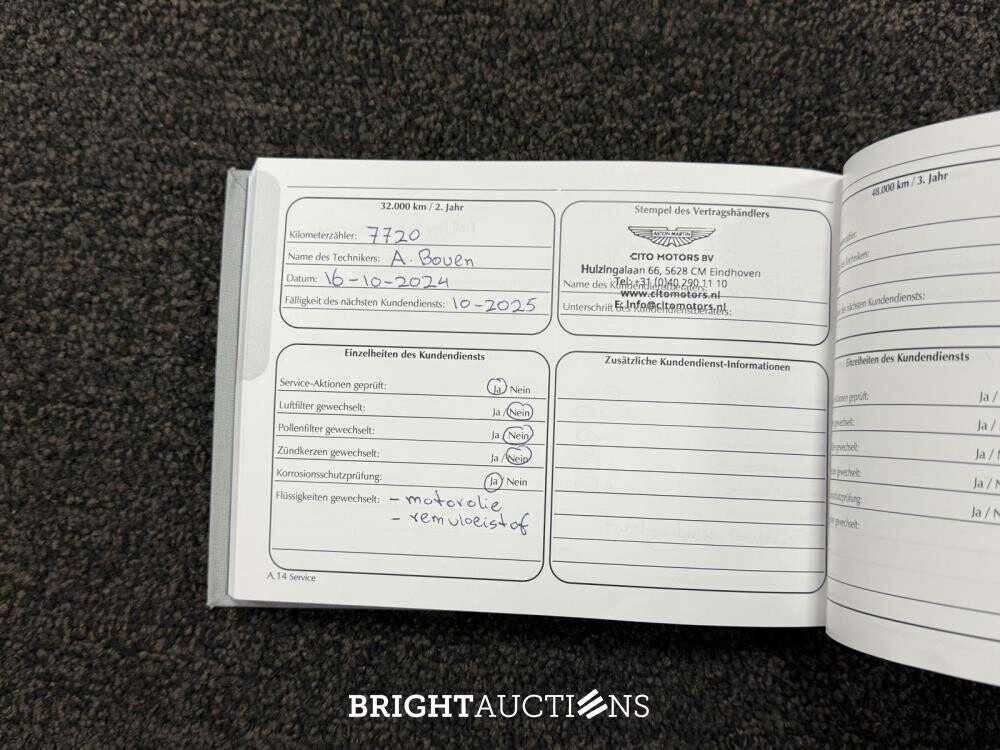 32.000 km / 2. Jahr
Kilometerzähler: 7720
Name des Technikers: A. Boven
Datum: 16-10-2024
Fälligkeit des nächsten Kundendiensts: 10-2025
Stempel des Vertragshändlers
ASTON MARTIN
CITO MOTORS BV
Huizingalaan 66, 5628 CM Eindhoven
Tel: +31 (0)40 290 11 10
Name des Kundendienstberaters:
www.citomotors.nl
E: Info@citomotors.nl
Unterschrift des Kundendienstberaters:
Einzelheiten des Kundendiensts
Service-Aktionen geprüft: Ja / Nein
Luftfilter gewechselt: Ja / Nein
Pollenfilter gewechselt: Ja / Nein
Zündkerzen gewechselt: Ja / Nein
Korrosionsschutzprüfung: Ja / Nein
Flüssigkeiten gewechselt: - motorolie
- remvloeistof
Zusätzliche Kundendienst-Informationen
A.14 Service
48.000 km / 3. Jahr
Technikers:
des nächsten Kundendiensts:
Einzelheiten des Kundendiensts
geprüft: Ja /
Ja /
Ja /
Ja / N
Ja / N
BRIGHTAUCTIONS